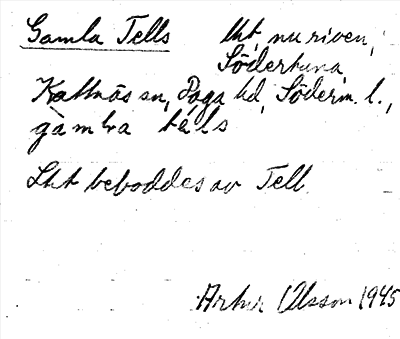 Gamla Tells lht, nu riven,
Södertuna,
Kattnäs sn, Daga hd, Söderm. l.,
gàmha tels
Lht beboddes av Tell.
Artur Olsson 1945